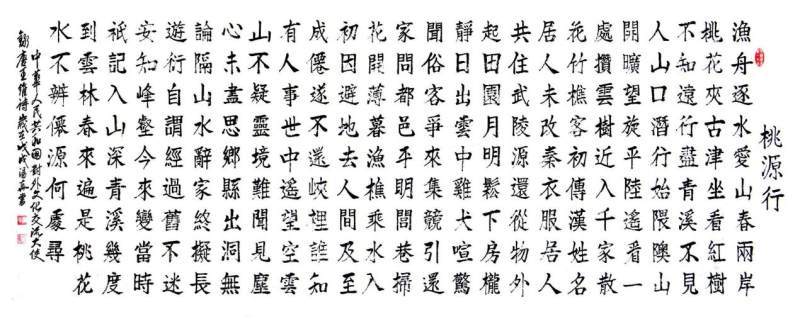 桃源行
漁舟逐水愛山春兩岸
桃花夾古津坐看紅樹
不知遠行盡青溪不見
人山口潛行始隈隩山
開曠望旋平陸遙看一
處攢雲樹近入千家散
花竹樵客初傳漢姓名
居人未改秦衣服居人
共住武陵源還從物外
起田園月明鬆下房櫳
靜日出雲中雞犬喧驚
聞俗客爭來集競引還
家問都邑平明閭巷掃
花開薄暮漁樵乘水入
初因避地去人間及至
成僊遂不還峽裡誰知
有人事世中遙望空雲
山不疑靈境難聞見塵
心未盡思鄉縣出洞無
論隔山水辭家終擬長
遊衍自謂經過舊不迷
安知峰壑今來變當時
祇記入山深青溪幾度
到雲林春來遍是桃花
水不辨僊源何處尋
中華人民共和國對外文化交流大使
錄唐王維詩歲在戊戌